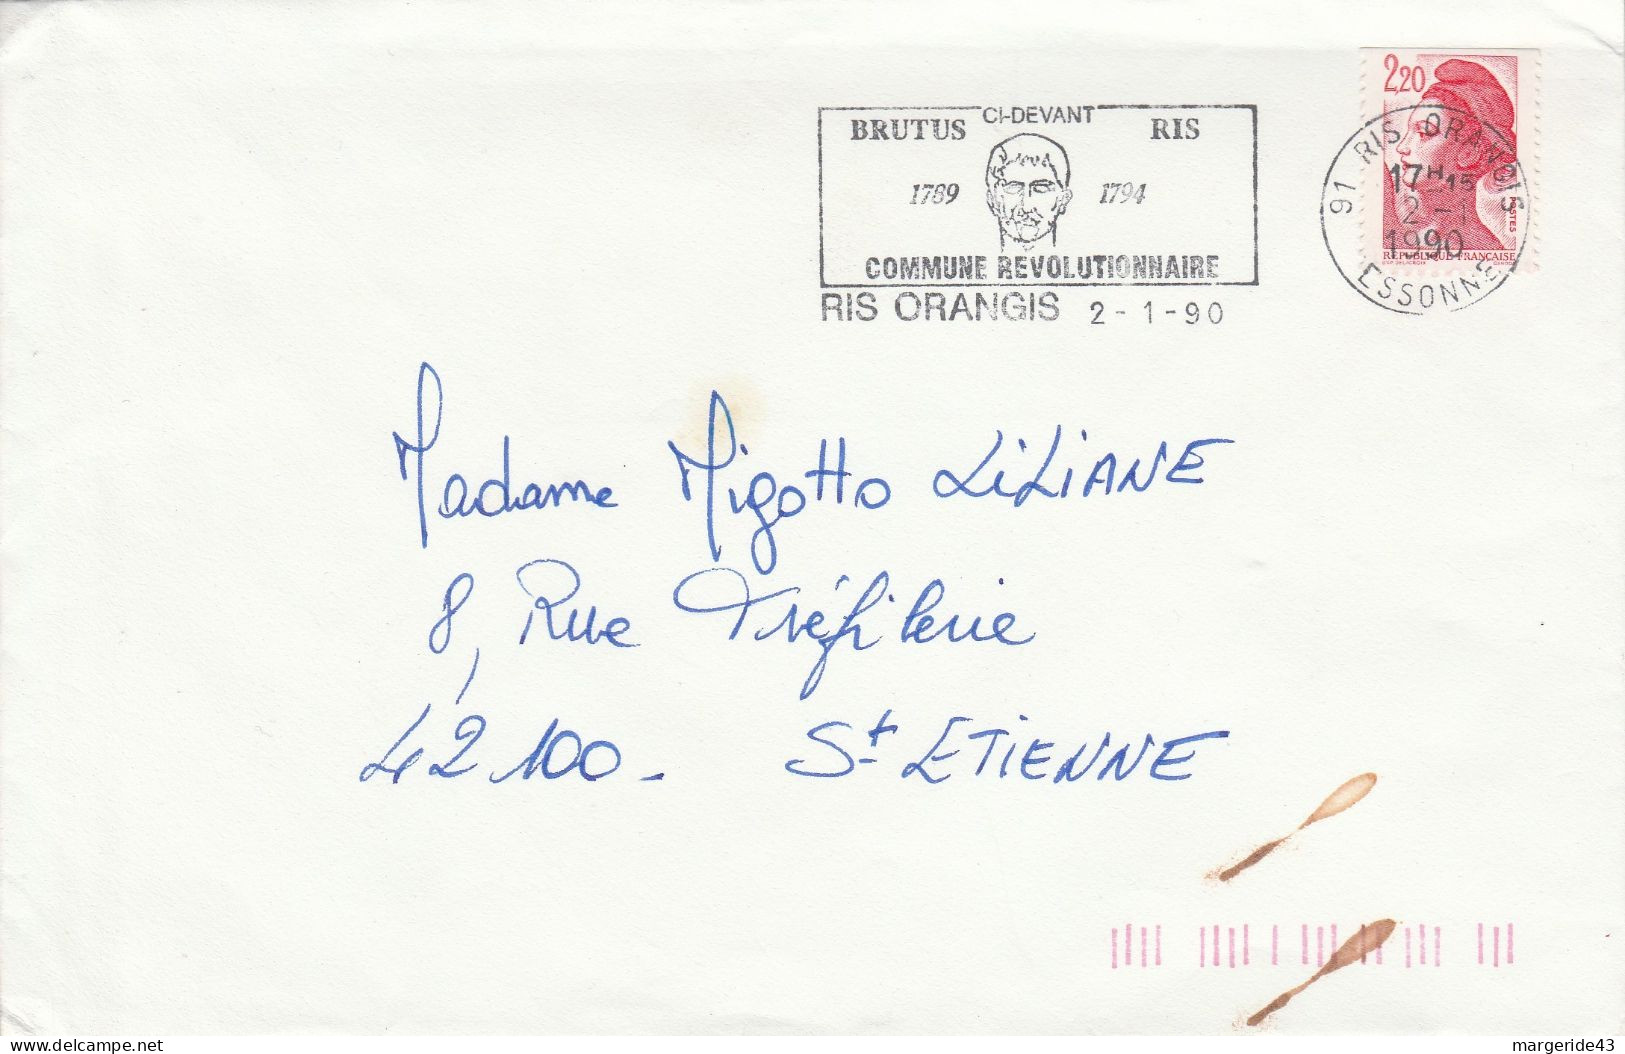 2,20
CI-DEVANT
BRUTUS RIS
1789 1794
COMMUNE REVOLUTIONNAIRE
RIS ORANGIS 2-1-90
91 RIS ORANGIS
17H15
2-1
1990
ESSONNE
POSTES
REPUBLIQUE FRANÇAISE
Madame Migotto LiLiANE
8, Rue Tréfilerie
42100_ St ETiENNE
delcampe.net
margeride43